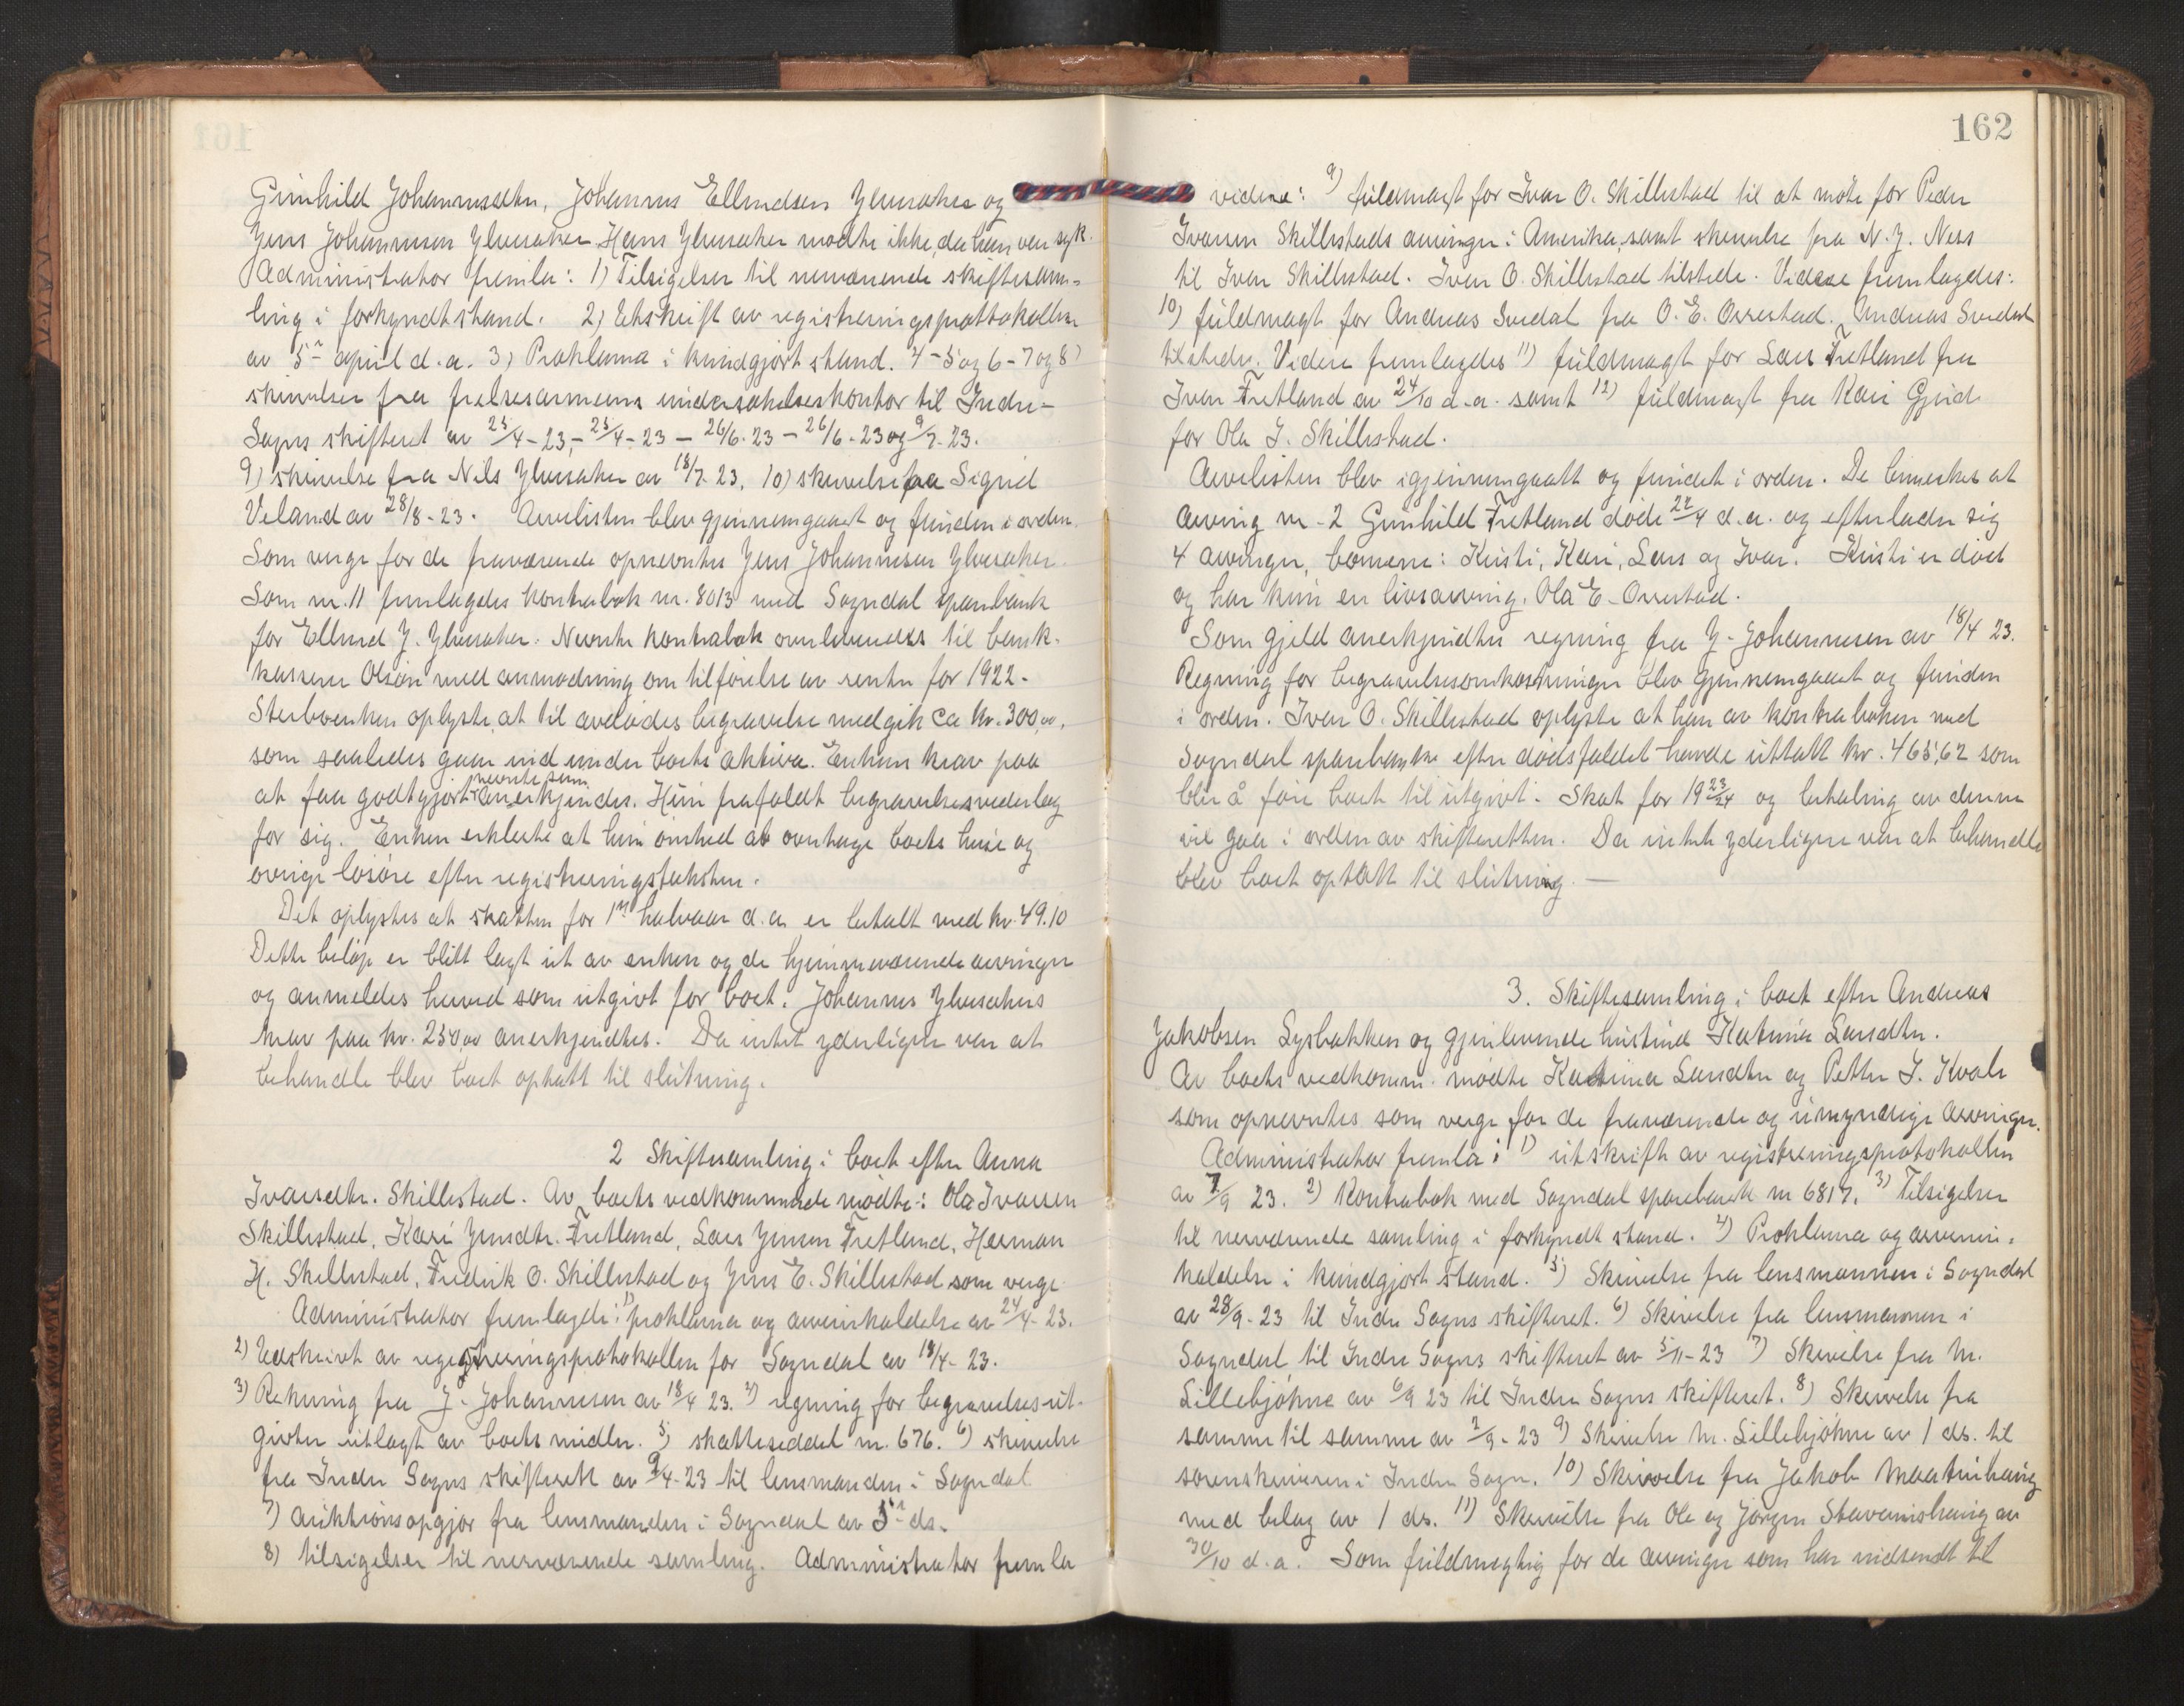 Gunhild Johannesdtr, Johannes Ellendsen Ylvisaker og
Jens Johannesen Ylvisaker. Hans Ylvisaker mødte ikke, da han var syk.
Administrator fremla: 1) Tilsigelser til nærværende skiftesam-
ling i forkyndt stand. 2) Utskrift av registreringsprottokollen
av 5te april d.a. 3) Proklama i kundgjort stand. 4-5 og 6-7 og 8)
skrivelser fra frelsesarmeens undersøkelseskontor til Indre-
Sogns skifteret av 25/4-23,- 25/4-23 - 26/6.23 - 26/6-23 og 9/7-23.
9) skrivelse fra Nils Ylvisaker av 18/7.23. 10) skrivelse fra Sigrid
Veland av 28/8-23. Arvelisten blev gjennemgaaet og funden i orden.
Som verge for de fraværende opnevntes Jens Johannesen Ylvisaker.
Som nr. 11 fremlagdes kontrabok nr. 8013 med Sogndal sparebank
for Ellend J. Ylvisaker. Nevnte kontrabok overleveredes til bank-
kasserer Olson med anmodning om tilførelse av renter for 1922.
Sterboenken oplyste, at til avdødes begravelse medgik ca kr. 300,00,
som saaledes gaar ind under boets aktiva. Enkens krav paa
at faa godtgjort nevnte sum anerkjendes. Hun frafaldt begravelsesvederlag
for sig. Enken erklærte at hun ønsked at overtage boets huse og
øvrige løsøre efter registreringstaksten.
Det oplystes at skatten for 1ste halvaar d.a. er betalt med kr. 49.10
Dette beløp er blitt lagt ut av enken og de hjemmeværende arvinger
og anmeldes herved som utgivt for boet. Johannes Ylvisakers
krav paa kr. 250,00 anerkjendtes. Da intet yderligere var at
behandle blev boet optatt til slutning.
2 Skiftesamling i boet efter Anna
Ivarsdtr. Skillestad. Av boets vedkommende mødte: Ola Ivarsen
Skillestad, Kari Jensdtr. Fretland, Lars Jensen Fretland, Herman
H. Skillestad, Fredrik O. Skillestad og Jens E. Skillestad som verge
Administrator fremlagde: 1) proklama og arveinkaldelse av 24/4-23.
2) Udskrivt av registreringsprotokollen for Sogndal av 18/4-23.
3) Rekning fra J. Johannesen av 18/4 23. 4) regning for begravelsesut-
givter utlagt av boets midler. 5) skatteseddel nr. 676. 6) skrivelse
fra Indre Sogns skifterett av 9/4-23 til lensmanden i Sogndal
7) auktionsopgjør fra lensmanden i Sogndal av 5te ds.
8) tilsigelser til nerværende samling. Administrator fremla
162
videre: 9) fuldmagt for Ivar O. Skillestad til at møte for Peder
Ivarsen Skillestads arvinger i Amerika, samt skrivelse fra N. J. Ness
til Ivar Skillestad. Ivar O. Skillestad tilstede. Videre fremlagdes:
10) fuldmagt for Andreas Svedal fra O. E. Orrestad. Andreas Svedal
tilstede. Videre fremlagdes 11) fuldmagt for Lars Fretland fra
Ivar Fretland av 24/10 d.a. samt 12) fuldmagt fra Kari Gjerde
for Ola I. Skillestad.
Arvelisten blev igjennemgaatt og fundet i orden. De bemerkes at
arving nr. 2 Gunhild Fretland døde 22/4 d.a. og efterlader sig
4 arvinger, barnene: Kristi, Kari, Lars og Ivar. Kristi er død
og har kun en livsarving, Ola E. Orrestad.
Som gjeld anerkjendtes regning fra J. Johannesen av 18/4 23.
Regning for begravelsesomkostninger blev gjennemgaaet og funden
i orden. Ivar O. Skillestad oplyste at han av kontraboken med
Sogndal sparebanke efter dødsfaldet havde uttatt kr. 465,62 som
blir å føre boet til utgivt. Skat for 19 23/24 og betaling av denne
vil gaa i orden av skifteretten. Da intet yderligere var at behandle
blev boet optatt til slutning.—
3. Skiftesamling i boet efter Andreas
Jakobsen Lysbakken og gjenlevende hustrud Katrina Larsdtr.
Av boets vedkomm. mødte Katrina Larsdtr og Petter J. Kvale
som opnevntes som verge for de fraværende og umyndige arvinger.
Administrator fremla: 1) utskrift av registreringsprotokollen
av 7/9 23. 2) Kontrabok med Sogndal sparebank nr 6817. 3) Tilsigelser
til nerværende samling i forkyndt stand. 4) Proklama og arvein-
kaldelse i kundgjort stand. 5) Skrivelse fra lensmannen i Sogndal
av 28/9-23 til Indre Sogns skifteret. 6) Skrivelse fra lensmannen i
Sogndal til Indre Sogns skifteret av 5/11-23 7) Skrivelse fra M.
Lillebjøhne av 6/9 23 til Indre Sogns skifteret. 8) Skrivelse fra
samme til samme av 2/9-23 9) Skrivelse M. Lillebjøhne av 1 ds. til
sorenskriveren i Indre Sogn. 10) Skrivelse fra Jakob
med bilag av 1 ds. 11) Skrivelse fra Ole og Jørgen Stavenishaug av
30/10 d.a. Som fuldmegtig for de arvinger som har indsendt til